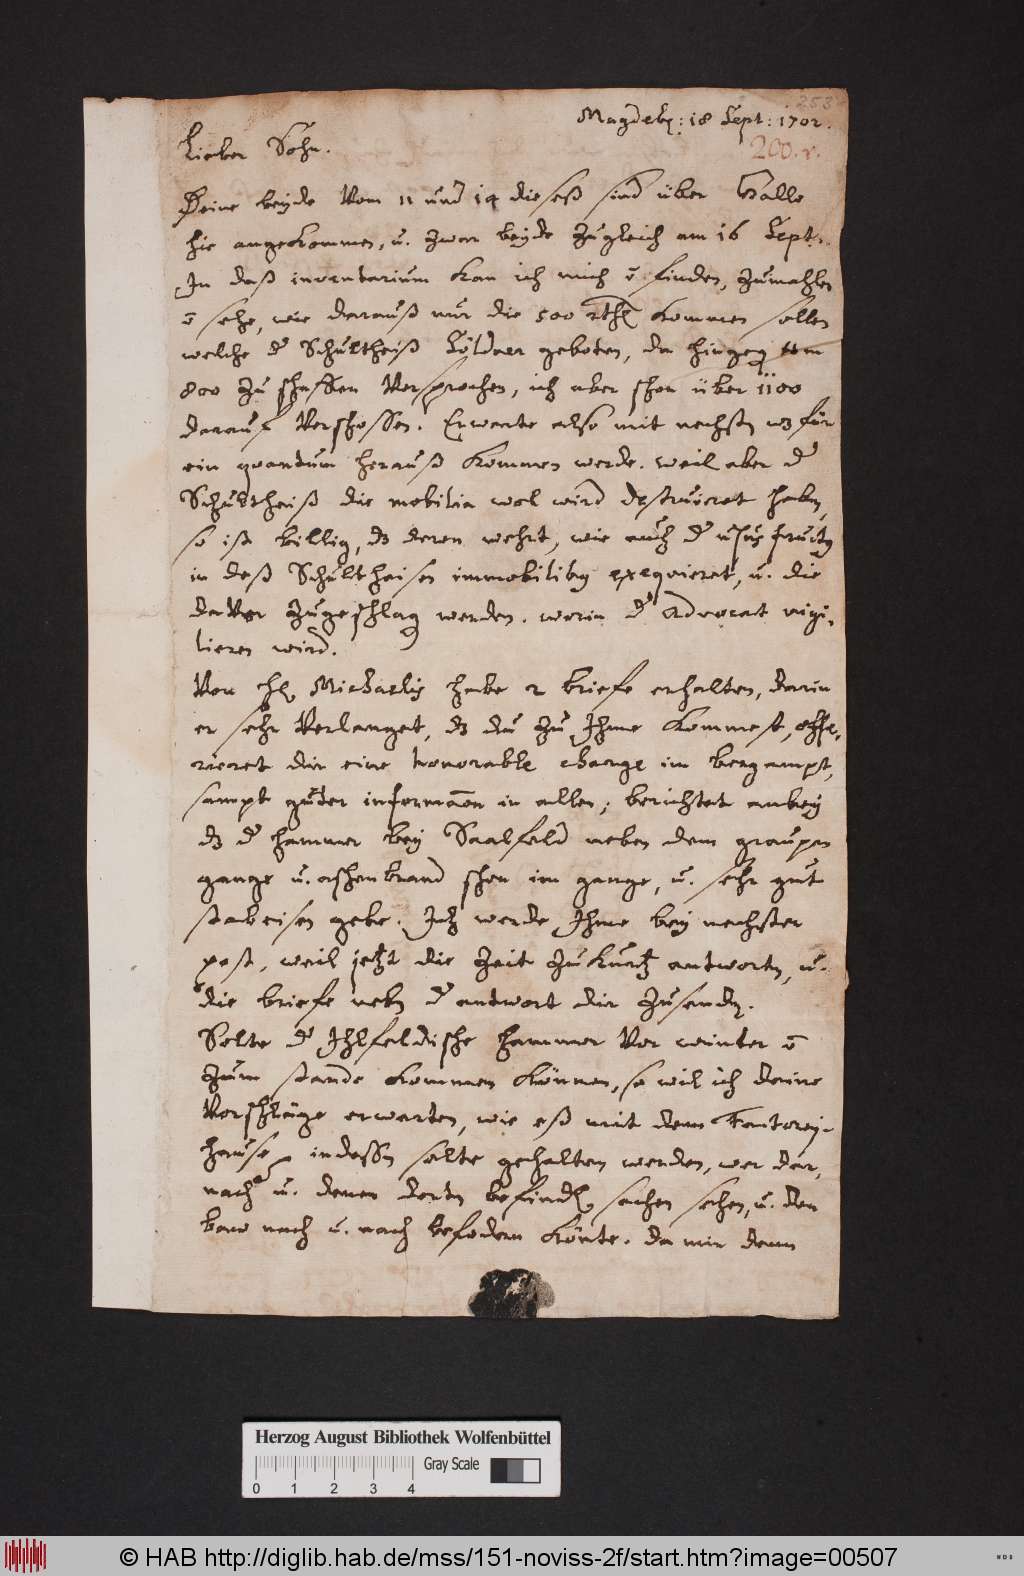 253
Magdeb: 18 Sept: 1702.
200. r.
Lieber Sohn.
Deine beyde Vom 11 und 14 dieseß sind über Halle
hie angekommen, u. zwar beyde zugleich am 16 Sept.
In daß inventarium kan ich mich ō finden, zumahlen
ō sehe, wie darauß nur die 500 rthl kommen sollen
welche d Schultheiß Söldner geboten, da hingeg
800 zu schaffen Versprochen, ich aber schon über 1100
darauf Verschossen. Erwarte also mit nechstn wz für
ein quantum herauß kommen werde. weil aber d
Schultheiß die mobilia wol wird destruieret habn,
so ist billig, dz deren wehrt, wie auch d usus fructus
in deß Schultheisen immobilibus exequieret, u. die
daVor zugeschlag werden. worin d Advocat vigi-
lieren wird.
Von Michaelis habe 2 briefe erhalten, darin
er sehr Verlanget, dz du zu Ihme kommest, offe-
rieret dir eine honorable charge im bergampt,
sampt guter information in allen; berichtet anbey
dz d hammer bey Saalfeld neben dem graupen
gange u. aschenbrand schon im gange, u. sehr gut
stabeisen gebe. Ich werde Ihme bey nechster
post, weil jetzt die Zeit zu kurtz antworten, u.
die briefe nebn d antwort dir zusendn.
Solte d Ihlfeldische hammer Vor winter ō
zum stande kommen können, so wil ich deine
Vorschläge erwarten, wie eß mit dem Factorey-
hause indessn solte gehalten werden, wer dar-
nach u. denen dortn befindl sachen sehen, u. den
baw nach u. nach befodern könte. da mir denn
Herzog August Bibliothek Wolfenbüttel
Gray Scale
0 1 2 3 4
© HAB http://diglib.hab.de/mss/151-noviss-2f/start.htm?image=00507